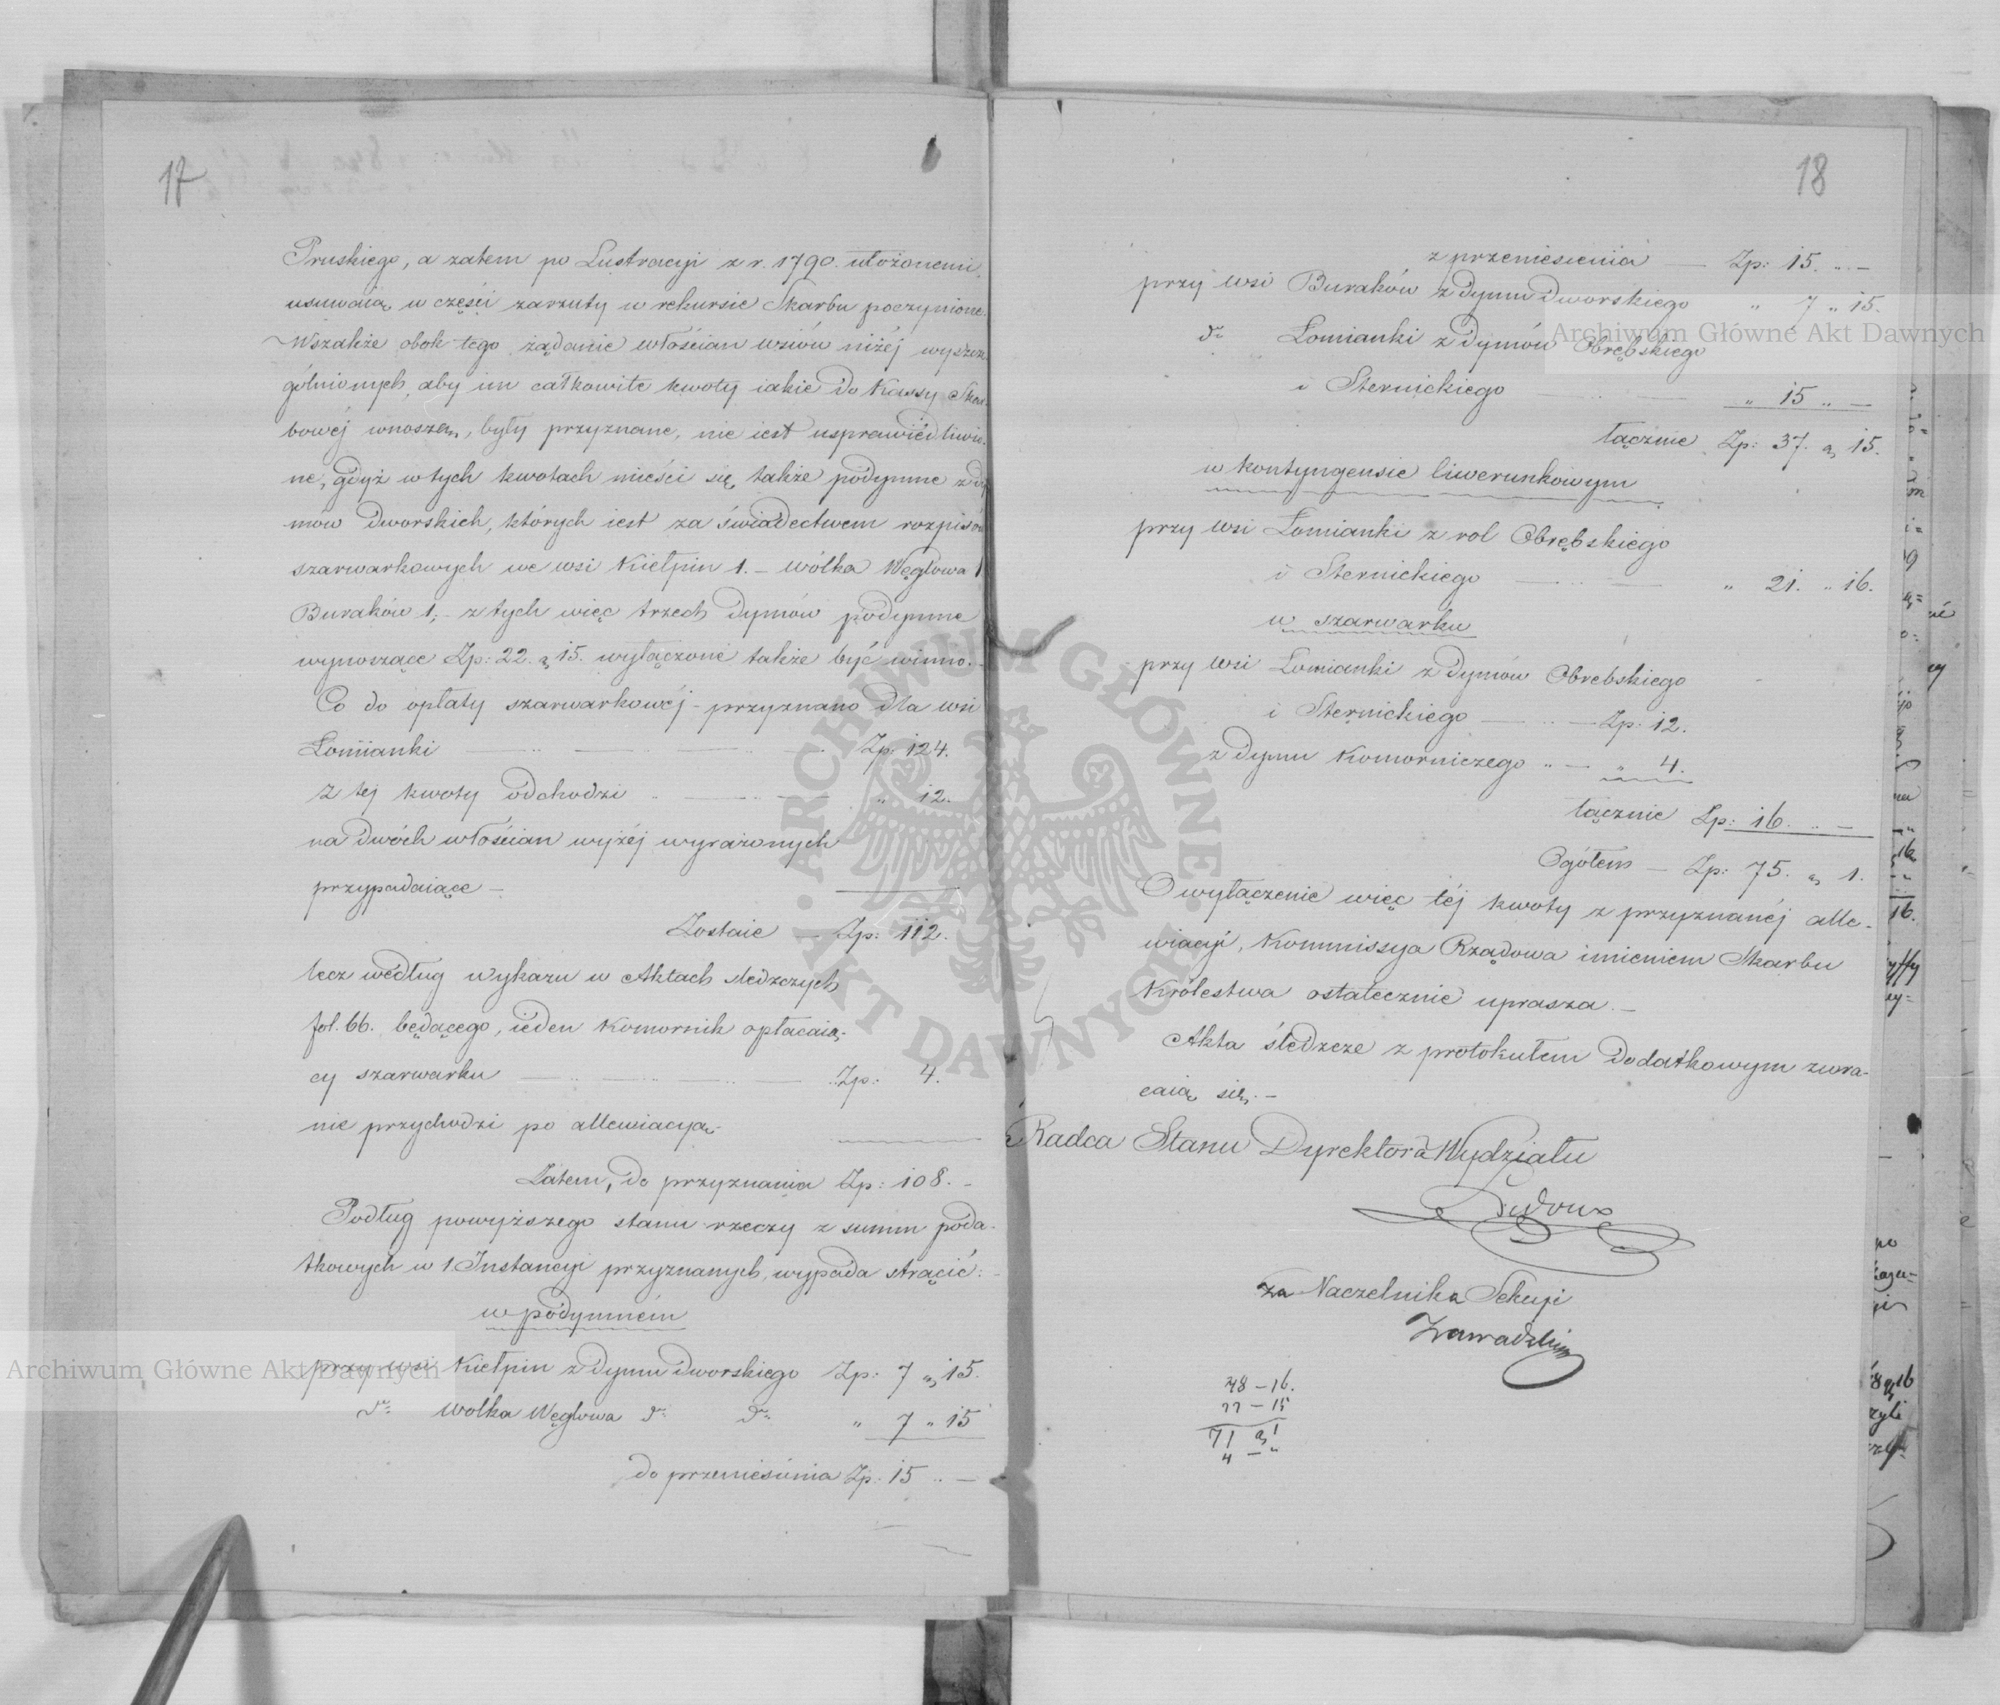 17
Pruskiego, a zatem po Lustracyi z r. 1790. ułożonemi,
usuwaią w części zarzuty w rekursie Skarbu poczynione.
Wszakże obok tego żądanie włościan wsiów niżej wyszcze
gólnionych, aby im całkowite kwoty iakie do Kassy Skar-
bowéj wnoszą, były przyznane, nie iest usprawiedliwio-
ne, gdyż w tych kwotach mieści się także podymne z dy
mów Dworskich, których iest za świadectwem rozpisów
szarwarkowych we wsi Kiełpin 1. – Wólka Węglowa 1
Buraków 1, – z tych więc trzech Dymów podymne
wynoszące Zp: 22. g 15. wyłączone także być winno. –
Co do opłaty szarwarkowéj – przyznano dla wsi
Łomianki Zp: 124.
z tej kwoty odchodzi „ 12.
na dwóch włościan wyżéj wyrażonych
przypadaiące –
Zostaie – Zp: 112.
lecz według wykazu w Aktach śledzczych
fol. 66. będącego, ieden Komornik opłacaią-
cy szarwarku Zp: 4.
nie przychodzi po allewiacyą
Zatem, do przyznania Zp: 108. –
Podług powyższego stanu rzeczy z summ poda-
tkowych w 1 Instancyi przyznanych, wypada strącić:
w podymném
przy wsi Kiełpin z Dymu Dworskiego Zp: 7 g 15.
do Wolka Węglowa do do „ 7 „ 15
do przeniesienia Zp: 15 „ –
18
z przeniesienia – Zp: 15. „ –
przy wsi Buraków z Dymu Dworskiego „ 7 „ 15.
do Łomianki z Dymów Obrębskiego
i Sternickiego „ 15 „ –
łącznie Zp: 37. g 15.
w kontyngensie liwerunkowym
przy wsi Łomianki z rol Obrębskiego
i Sternickiego „ 21. „ 16.
w szarwarku
przy wsi Łomianki z Dymów Obrebskiego
i Sternickiego – Zp: 12.
z dymu Komorniczego „ – „ 4.
łącznie Zp: 16. „ –
Ogółem – Zp: 75. g 1.
O wyłączenie więc téj kwoty z przyznanéj alle-
wiacyi, Kommissya Rządowa imieniem Skarbu
Królestwa ostatecznie uprasza. –
Akta śledzcze z protokułem Dodatkowym zwra-
caią się. –
Radca Stanu Dyrektora Wydziału
za Naczelnika Sekcyi
Zawadzki
48 – 16.
– 15
71 g 1
4 – „
Archiwum Główne Akt Dawnych
Archiwum Główne Akt Dawnych
ARCHIWUM GŁÓWNE AKT DAWNYCH